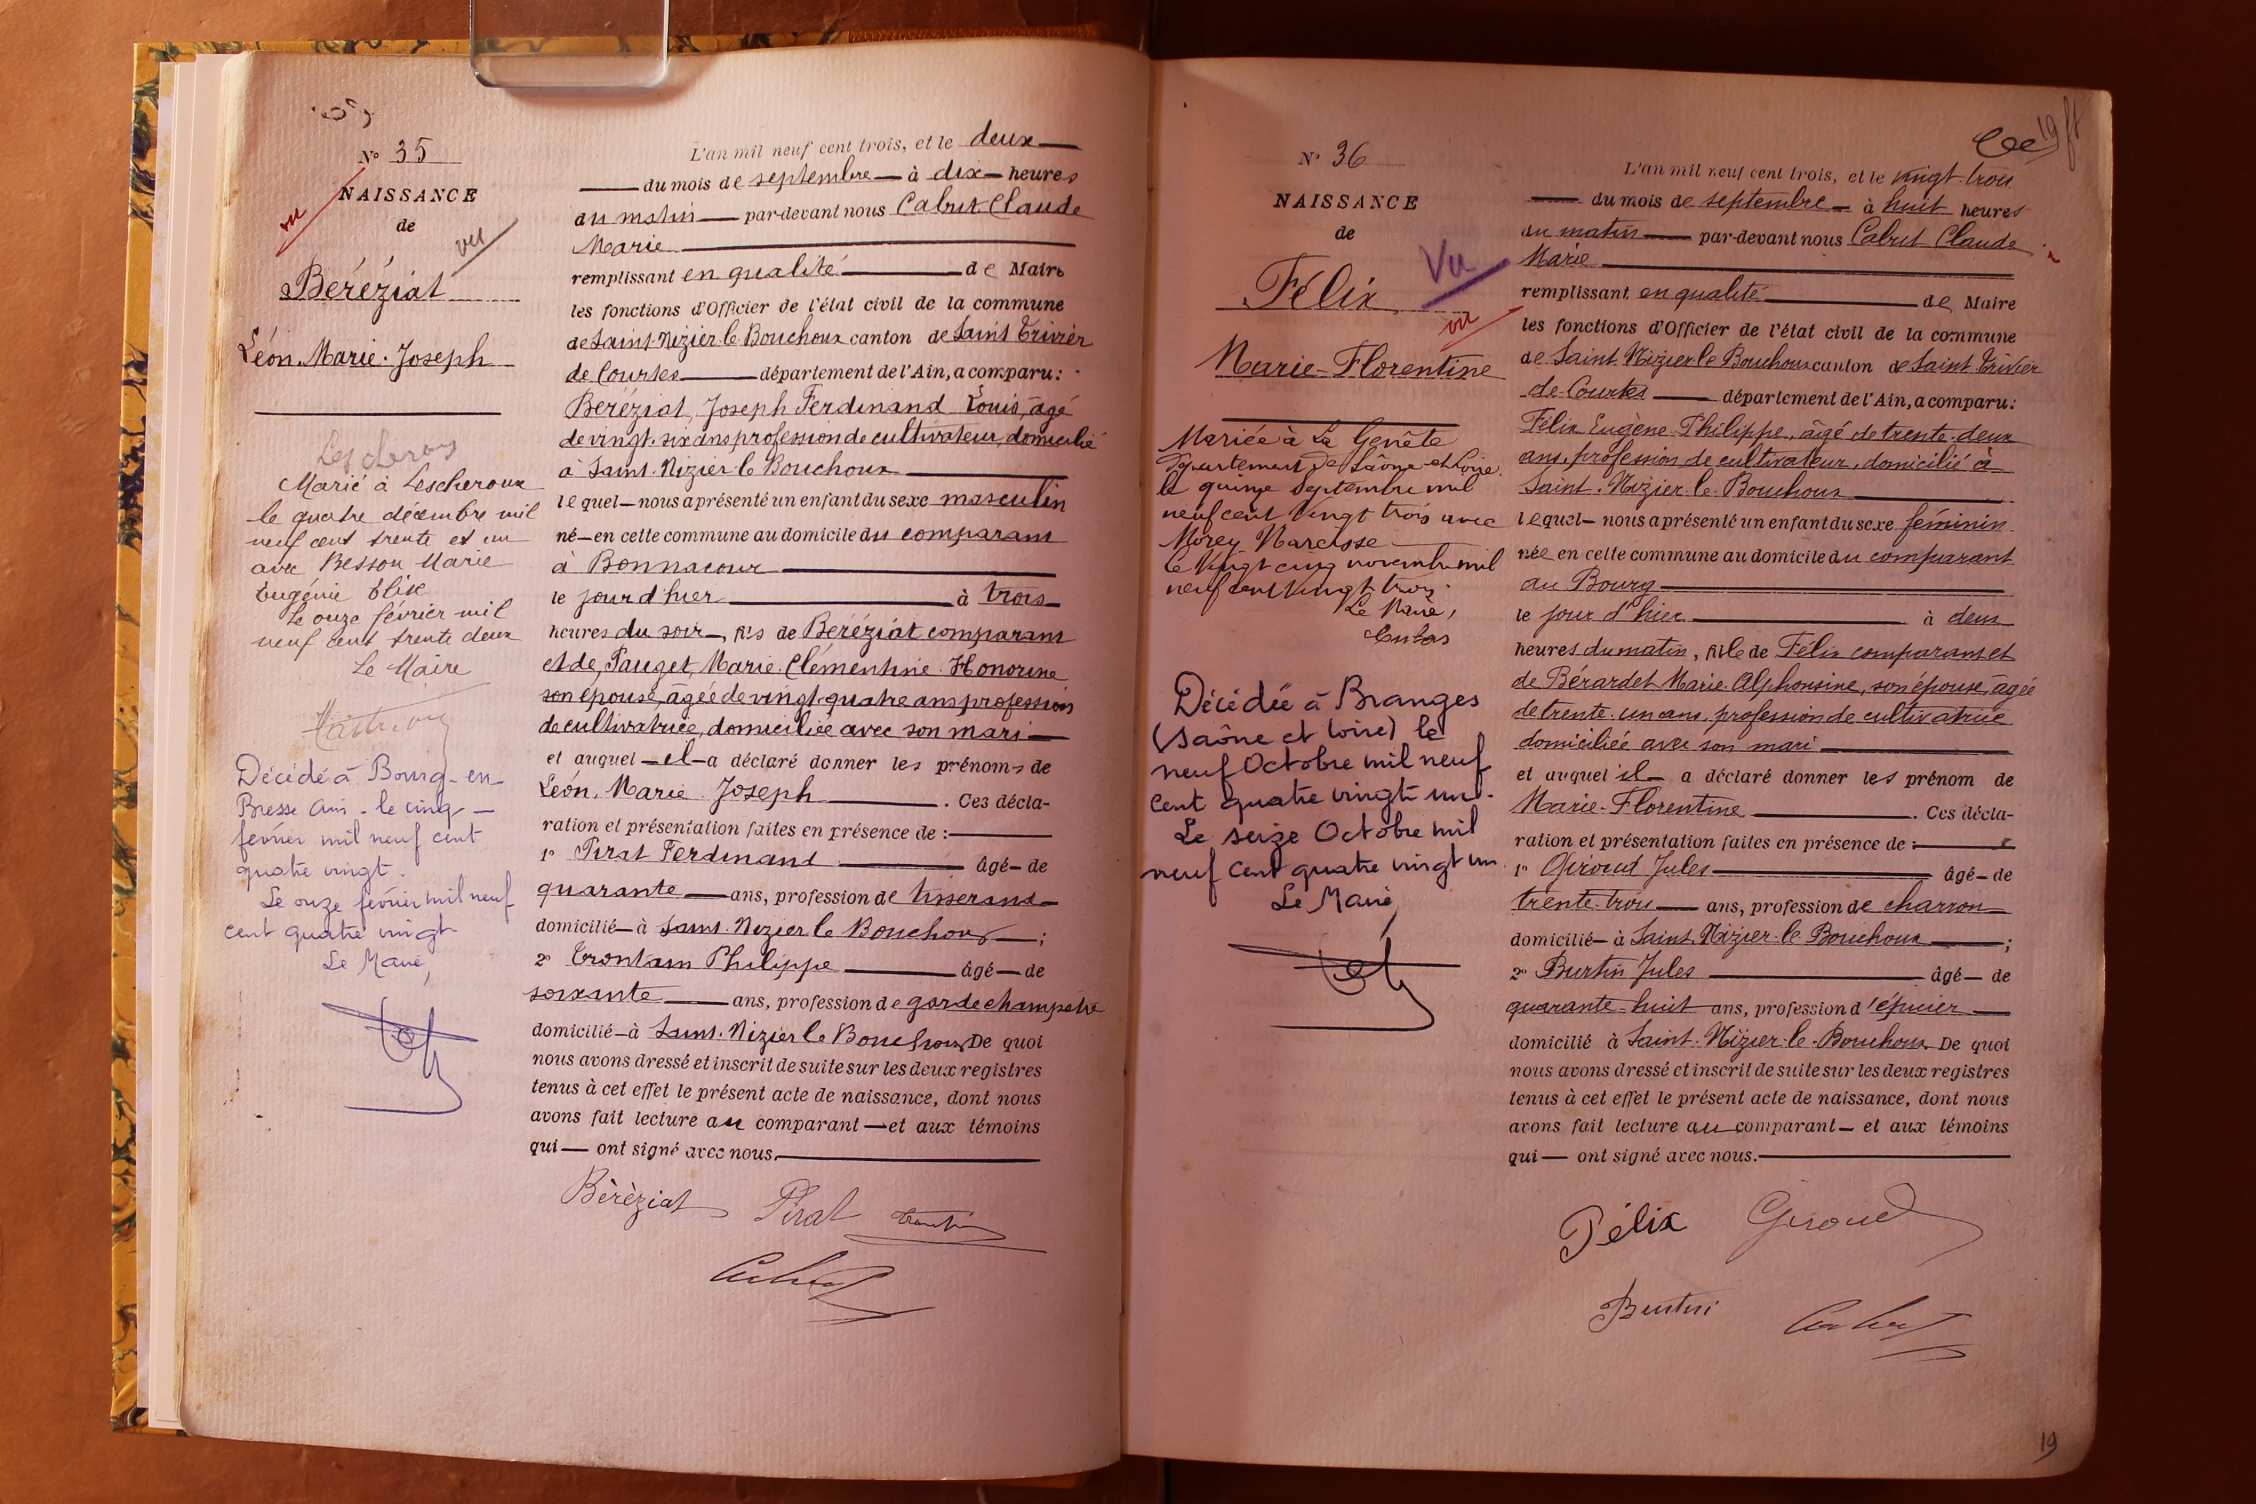 N° 35
NAISSANCE
de
vu
vu
Béréziat
Léon. Marie. Joseph
Lescheroux
Marié à Lescheroux
le quatre décembre mil
neuf cent trente et un
avec Besson Marie
Eugénie Elise
Le onze février mil
neuf cent trente deux
Le Maire
Décédé à Bourg-en-
Bresse Ain - le cinq -
février mil neuf cent
quatre vingt.
Le onze février mil neuf
cent quatre vingt
Le Maire,
L'an mil neuf cent trois, et le deux
du mois de septembre à dix heures
du matin par-devant nous Cabut Claude
Marie
remplissant en qualité de Maire
les fonctions d'Officier de l'état civil de la commune
de Saint-Nizier le Bouchoux canton de Saint Trivier
de Courtes département de l'Ain, a comparu:
Béréziat, Joseph Ferdinand Louis, âgé
de vingt-six ans profession de cultivateur, domicilié
à Saint-Nizier le Bouchoux
lequel nous a présenté un enfant du sexe masculin
né en cette commune au domicile du comparant
à Bonnacour
le jour d'hier à trois
heures du soir, fils de Béréziat comparant
et de, Pauget, Marie. Clémentine. Honorine
son épouse, âgée de vingt-quatre ans profession
de cultivatrice, domiciliée avec son mari
et auquel il a déclaré donner les prénoms de
Léon. Marie. Joseph . Ces décla-
ration et présentation faites en présence de :
1° Pirat Ferdinand âgé de
quarante ans, profession de tisserand
domicilié à Saint-Nizier le Bouchoux ;
2° Trontain Philippe âgé de
soixante ans, profession de garde champêtre
domicilié à Saint-Nizier le Bouchoux De quoi
nous avons dressé et inscrit de suite sur les deux registres
tenus à cet effet le présent acte de naissance, dont nous
avons fait lecture au comparant et aux témoins
qui ont signé avec nous.
Béréziat Pirat
Cabut
19
N° 36
NAISSANCE
de
Vu
vu
Félix
Marie-Florentine
Mariée à La Genête
département de Saône-et-Loire
le quinze Septembre mil
neuf cent vingt trois avec
Morey Narcisse
le vingt cinq novembre mil
neuf cent vingt trois.
Le Maire,
Décédée à Branges
(Saône et Loire) le
neuf Octobre mil neuf
cent quatre vingt un.
Le seize Octobre mil
neuf cent quatre vingt un.
Le Maire,
L'an mil neuf cent trois, et le vingt-trois
du mois de septembre à huit heures
du matin par-devant nous Cabut Claude
Marie
remplissant en qualité de Maire
les fonctions d'Officier de l'état civil de la commune
de Saint-Nizier-le Bouchoux canton de Saint Trivier
de Courtes département de l'Ain, a comparu:
Félix Eugène Philippe, âgé de trente-deux
ans, profession de cultivateur, domicilié à
Saint-Nizier-le-Bouchoux
lequel nous a présenté un enfant du sexe féminin
née en cette commune au domicile du comparant
au Bourg
le jour d'hier à deux
heures du matin, fille de Félix comparant et
de Bérardet Marie Alphonsine, son épouse, âgée
de trente-un ans, profession de cultivatrice
domiciliée avec son mari
et auquel il a déclaré donner les prénom de
Marie-Florentine . Ces décla-
ration et présentation faites en présence de :
1° Giroud Jules âgé de
trente-trois ans, profession de charron
domicilié à Saint-Nizier-le Bouchoux ;
2° Burtin Jules âgé de
quarante-huit ans, profession d'épicier
domicilié à Saint-Nizier-le-Bouchoux De quoi
nous avons dressé et inscrit de suite sur les deux registres
tenus à cet effet le présent acte de naissance, dont nous
avons fait lecture au comparant et aux témoins
qui ont signé avec nous.
Félix Giroud
Burtin Cabut
19